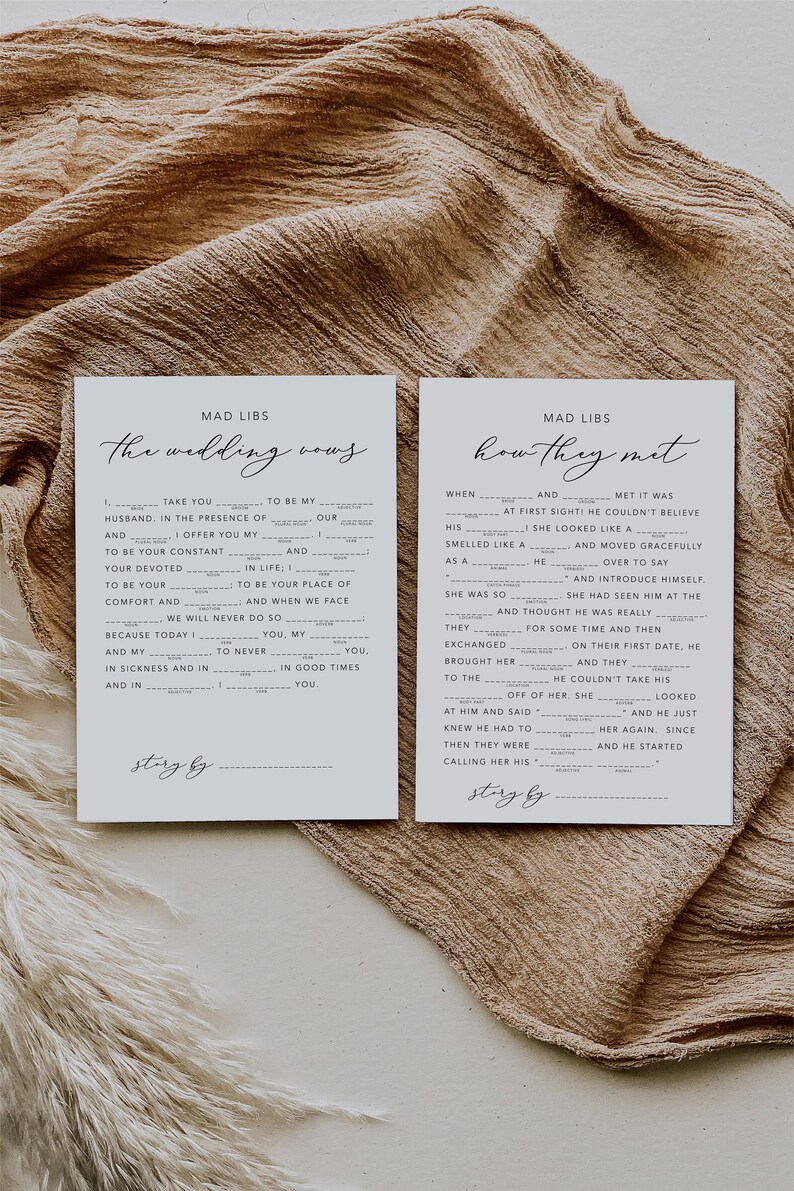 MAD LIBS
the wedding vows
I, ________ TAKE YOU ________, TO BE MY __________
BRIDE GROOM ADJECTIVE
HUSBAND. IN THE PRESENCE OF _______, OUR ______
PLURAL NOUN NOUN
AND _______, I OFFER YOU MY _______. I _________
PLURAL NOUN NOUN VERB
TO BE YOUR CONSTANT _________ AND _________;
NOUN NOUN
YOUR DEVOTED __________ IN LIFE; I ___________
NOUN VERB
TO BE YOUR ___________; TO BE YOUR PLACE OF
NOUN
COMFORT AND __________; AND WHEN WE FACE
EMOTION
_________, WE WILL NEVER DO SO _____________;
NOUN ADVERB
BECAUSE TODAY I ___________ YOU, MY __________
VERB NOUN
AND MY ___________, TO NEVER _____________ YOU,
NOUN VERB
IN SICKNESS AND IN ___________, IN GOOD TIMES
VERB
AND IN ____________. I ____________ YOU.
ADJECTIVE VERB
story by ____________________
MAD LIBS
how they met
WHEN _________ AND _________ MET IT WAS
BRIDE GROOM
_________ AT FIRST SIGHT! HE COULDN'T BELIEVE
NOUN
HIS __________! SHE LOOKED LIKE A _________,
BODY PART NOUN
SMELLED LIKE A _______, AND MOVED GRACEFULLY
NOUN
AS A _________. HE _________ OVER TO SAY
ANIMAL VERB(ED)
"____________________" AND INTRODUCE HIMSELF.
CATCH PHRASE
SHE WAS SO _________. SHE HAD SEEN HIM AT THE
EMOTION
_________ AND THOUGHT HE WAS REALLY _________.
LOCATION ADJECTIVE
THEY _________ FOR SOME TIME AND THEN
VERB(ED)
EXCHANGED __________. ON THEIR FIRST DATE, HE
PLURAL NOUN
BROUGHT HER __________ AND THEY ___________
PLURAL NOUN VERB(ED)
TO THE ____________ HE COULDN'T TAKE HIS
LOCATION
___________ OFF OF HER. SHE __________ LOOKED
BODY PART ADVERB
AT HIM AND SAID "______________" AND HE JUST
SONG LYRIC
KNEW HE HAD TO ___________ HER AGAIN. SINCE
VERB
THEN THEY WERE ___________ AND HE STARTED
ADJECTIVE
CALLING HER HIS "__________ __________."
ADJECTIVE ANIMAL
story by ____________________